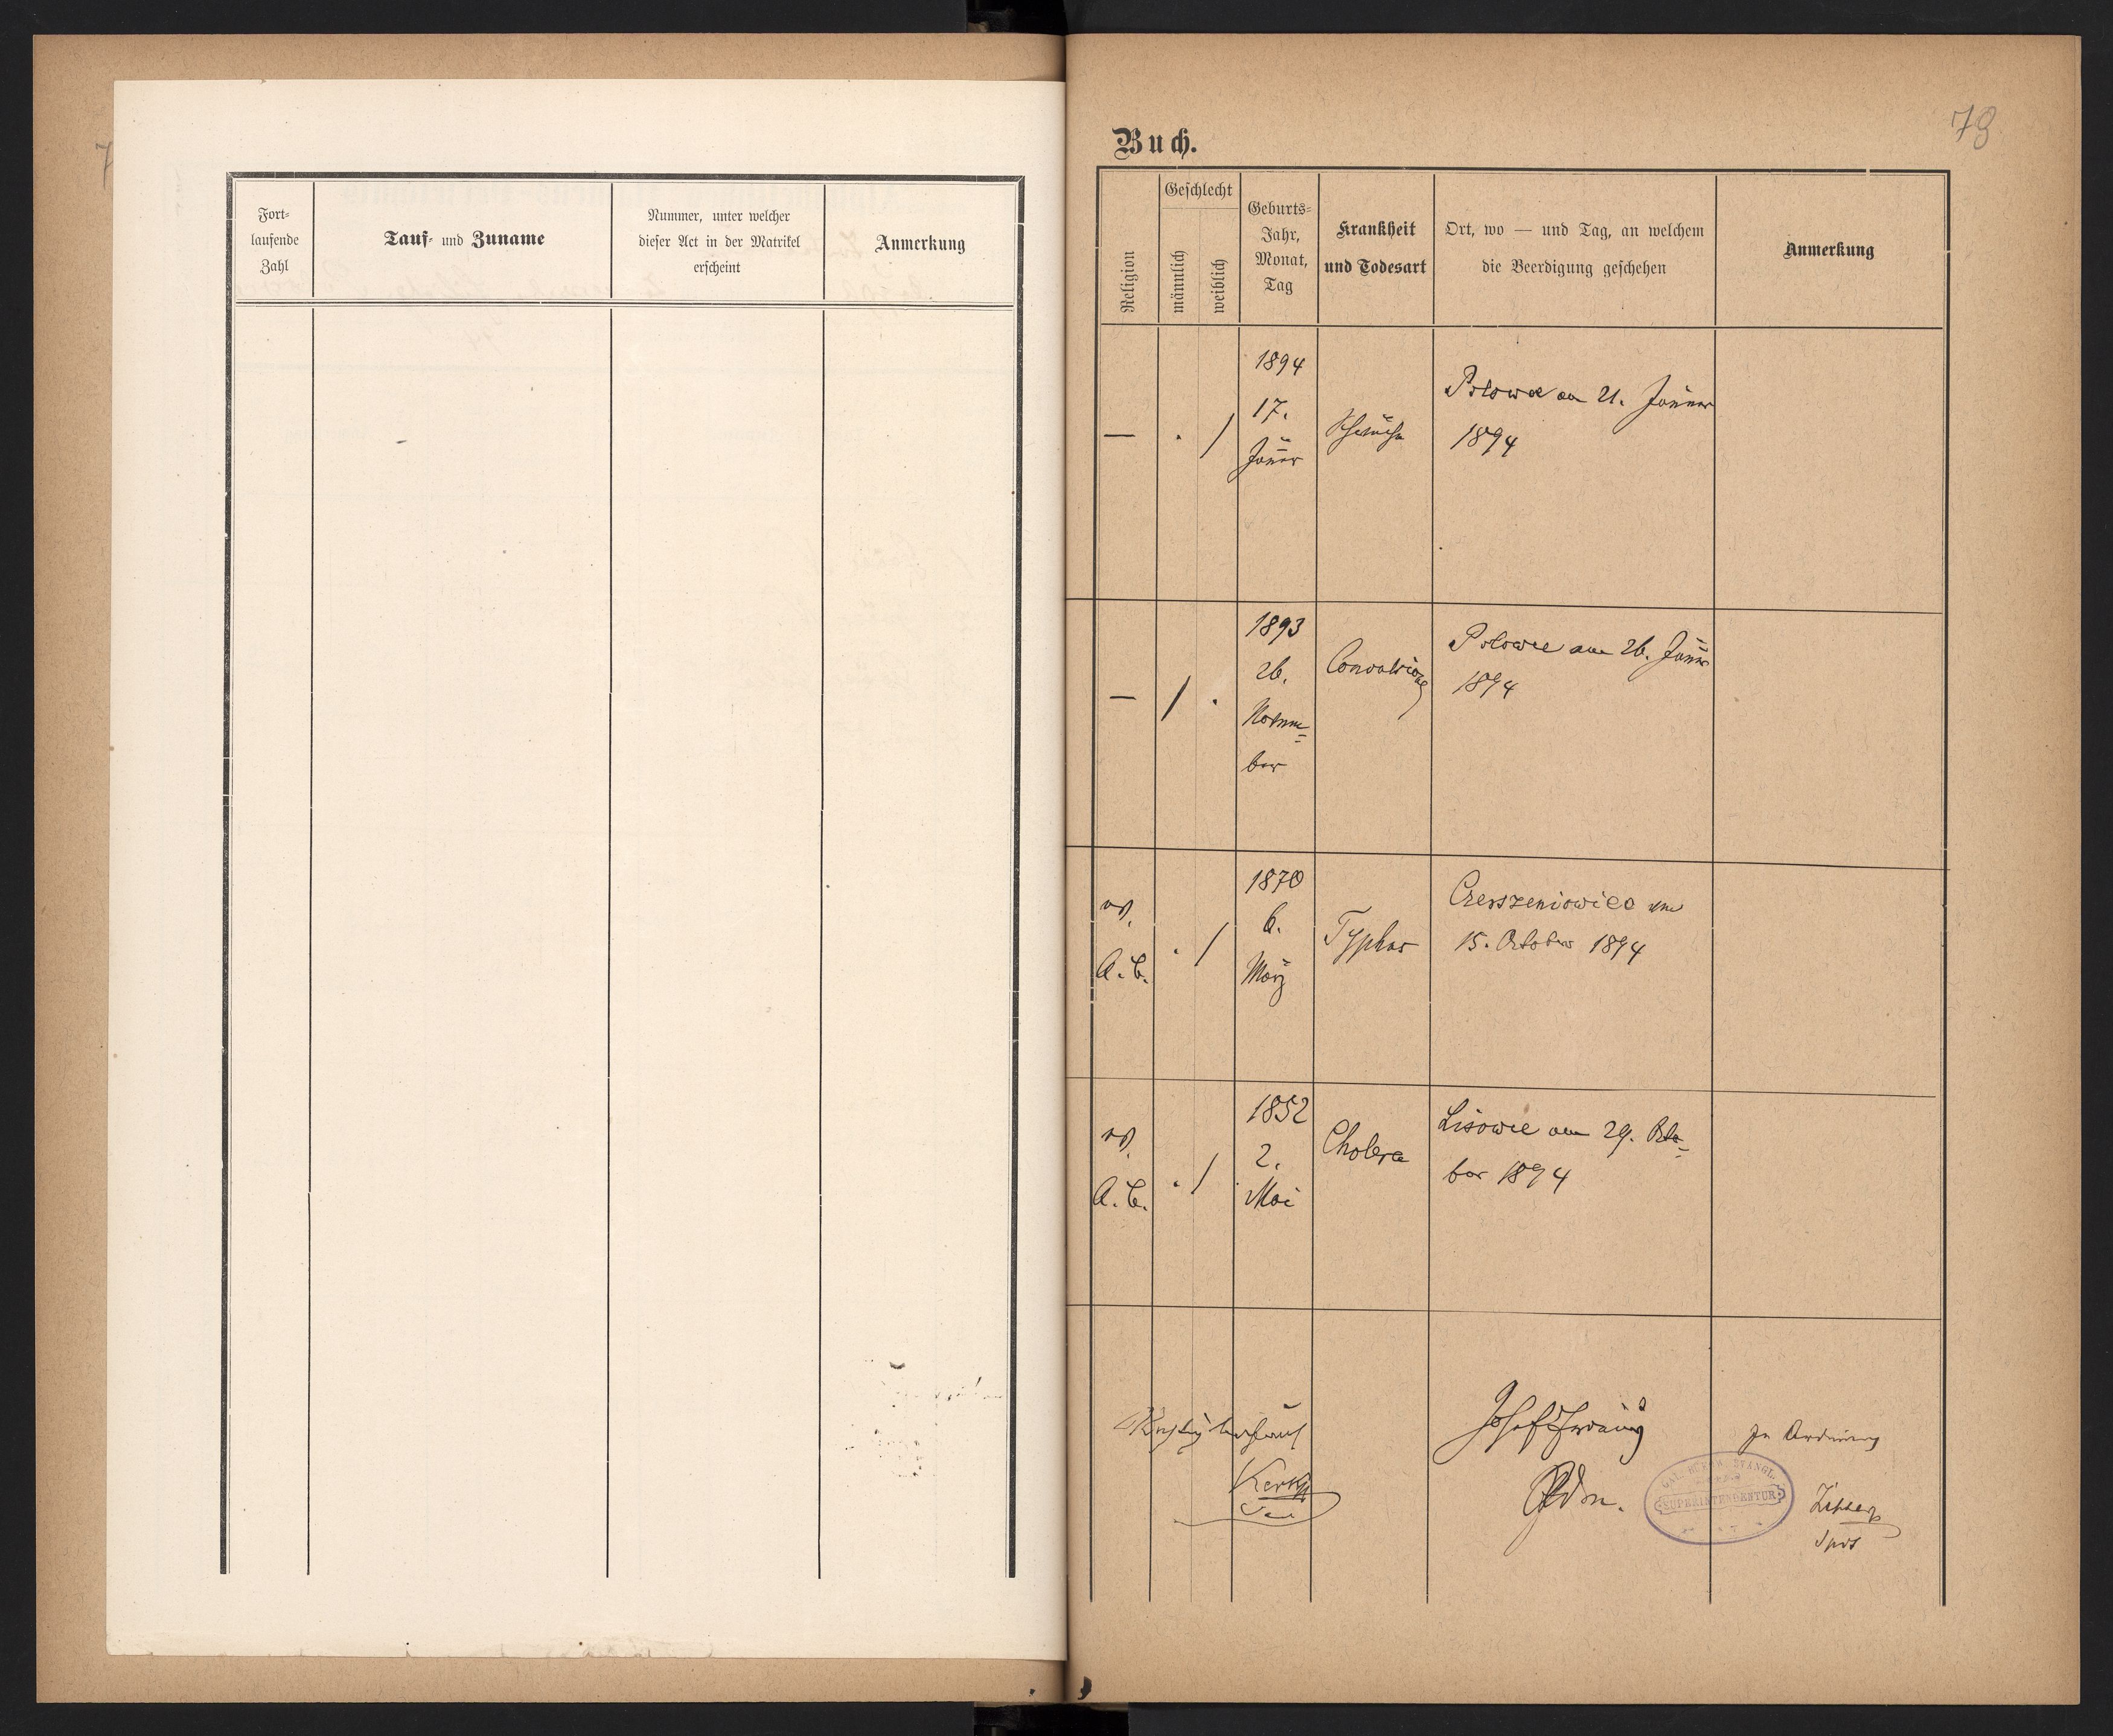 Fort-
laufende
Zahl
Tauf- und Zuname
Nummer, unter welcher
dieser Act in der Matrikel
erscheint
Anmerkung
78
Buch.
Religion
Geschlecht
männlich
weiblich
Geburts-
Jahr,
Monat,
Tag
Krankheit
und Todesart
Ort, wo — und Tag, an welchem
die Beerdigung geschehen
Anmerkung
—
.
/
1894
17.
Jänner
Schwäche
Polowce am 21. Jänner
1894
—
/
.
1893
26.
Novem-
ber
Convulsionen
Polowce am 26. Jänner
1894
ev.
A. C.
.
/
1870
6.
März
Typhus
15. October 1894
ev.
A. C.
.
/
1852
2.
Mai
Cholera
Lisowce am 29. Octo-
ber 1894
Josef
Adm.
In Ordnung
GAL. BUKOW. EVANGL.
SUPERINTENDENTUR